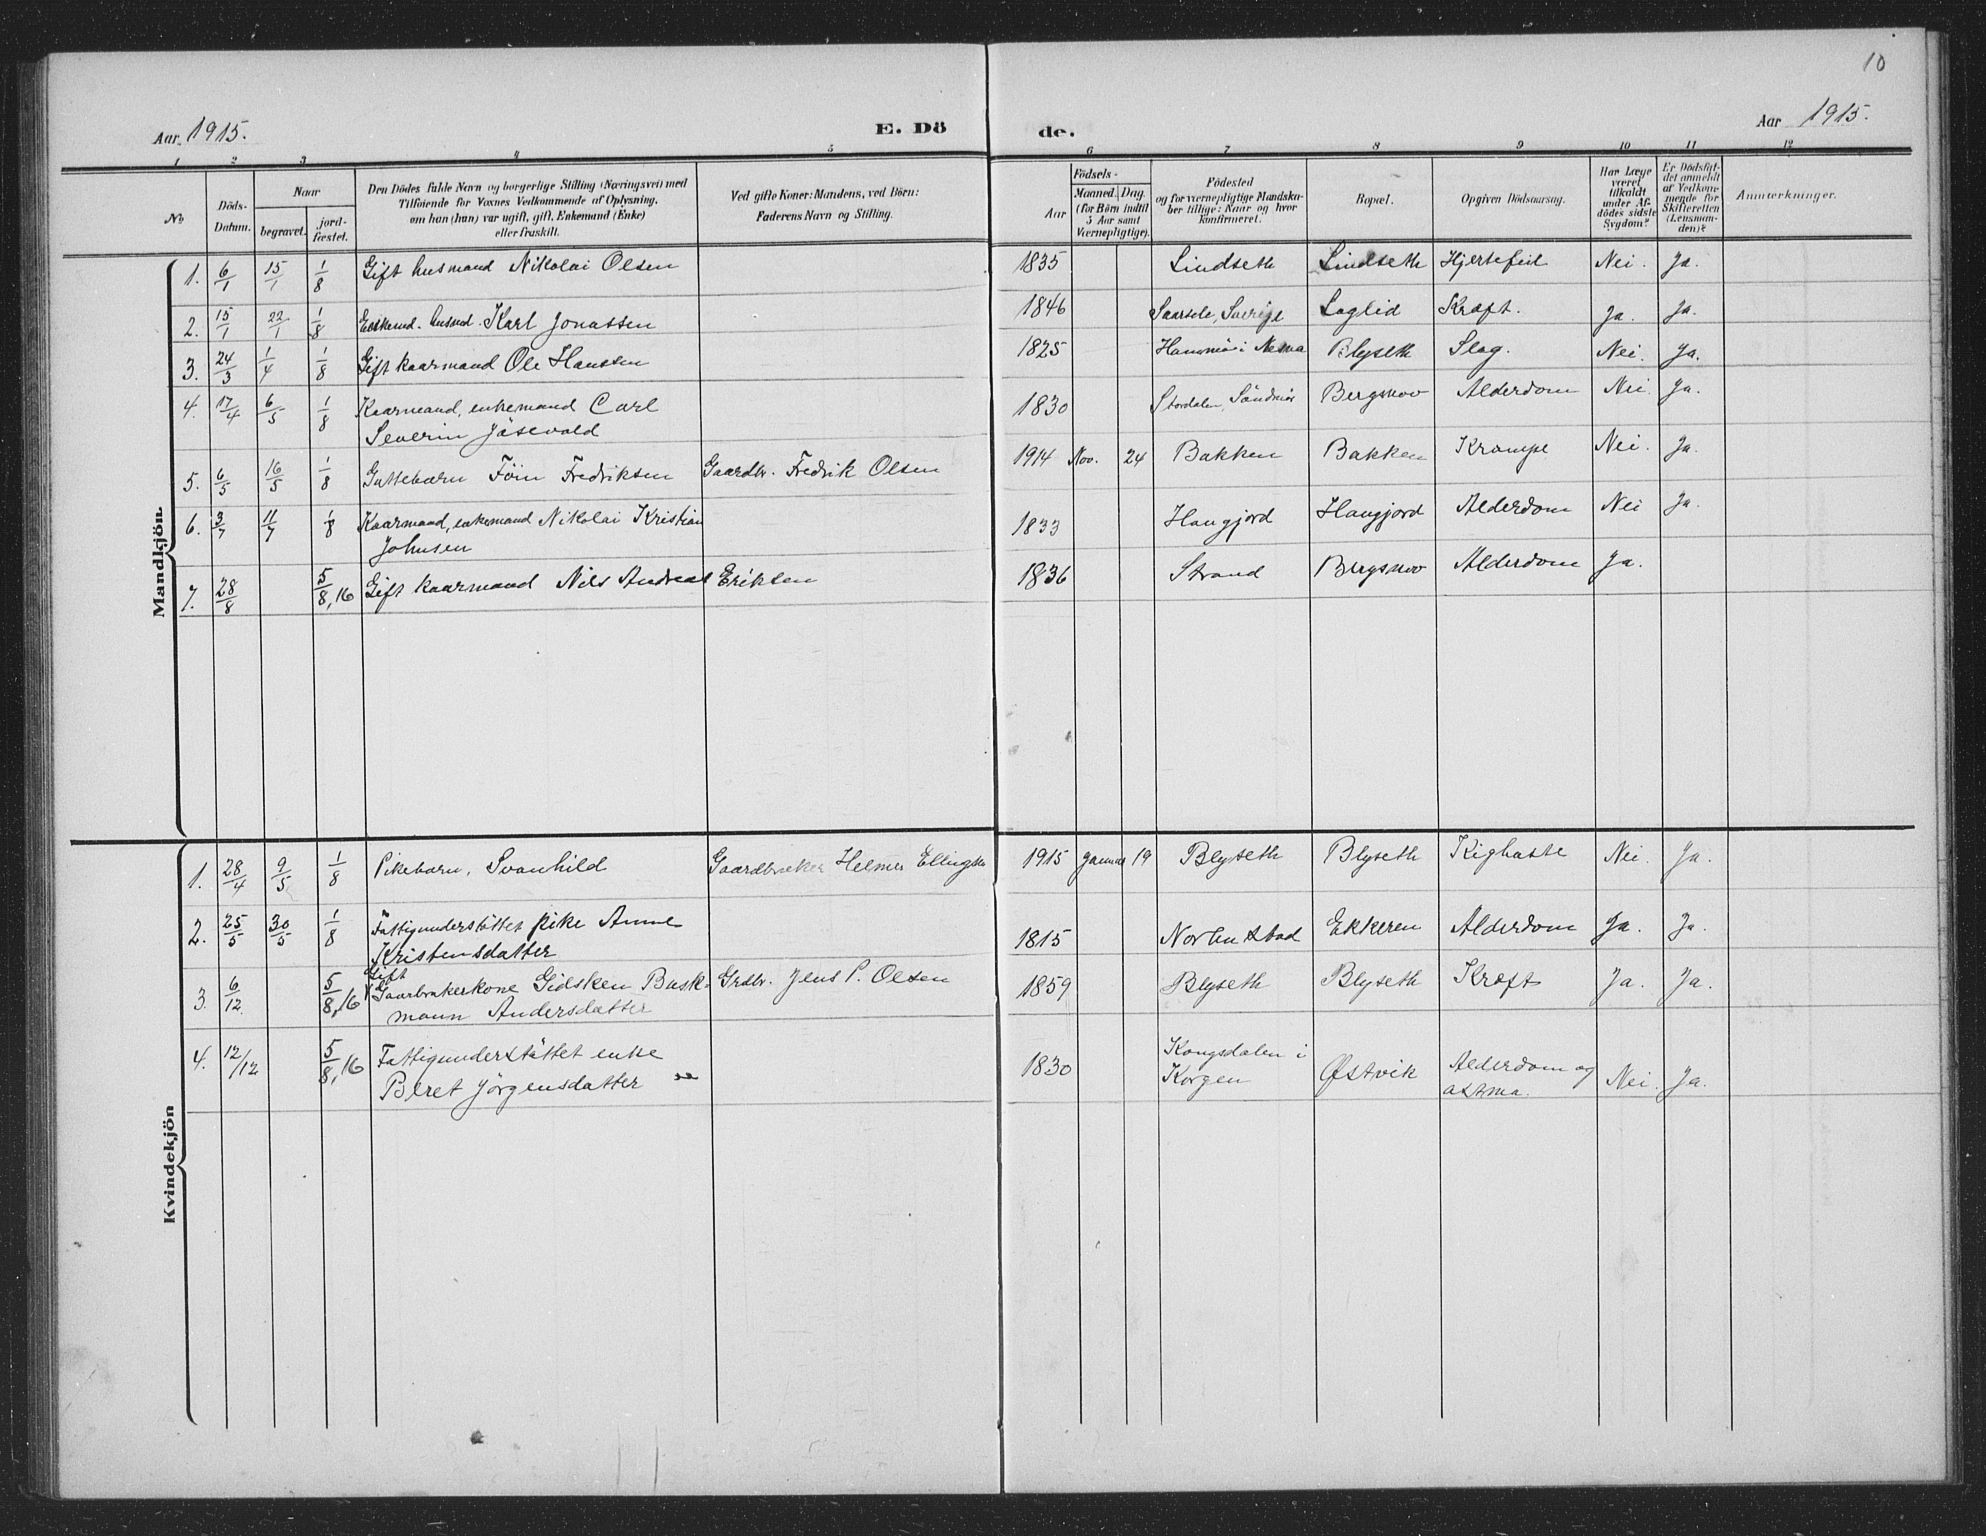 10
Aar 1915.
E. Dö
de.
Aar 1915.
1 2 3 4 5 6 7 8 9 10 11 12
No
Döds-Datum.
Naar
begravet.
jord-fæstet.
Den Dödes fulde Navn og borgerlige Stilling (Næringsvei) med
Tilføiende for Voxnes Vedkommende af Oplysning,
om han (hun) var ugift, gift, Enkemand (Enke)
eller fraskilt.
Ved gifte Koner: Mandens, ved Börn:
Faderens Navn og Stilling.
Födsels-
Aar
Maaned. Dag.
(for Børn indtil
5 Aar samt
Værnepligtige).
Födested
og for værnepligtige Mandska-
ber tillige: Naar og hvor
konfirmeret.
Bopæl.
Opgiven Dödsaarsag.
Har Læge
været
tilkaldt
under Af-
dödes sidste
Sygdom?
Er Dödsfal-
det anmeldt
af Vedkom-
mende for
Skifteretten
(Lensman-
den)?
Anmærkninger.
Mandkjön.
1. 6/1 15/1 1/8 Gift husmand Nikolai Olsen 1835 Lindseth Lindseth Hjertefeil Nei. Ja.
2. 15/1 22/1 1/8 Karl Jonassen 1846 Saarsele, Sverige Laglid Kræft. Ja. Ja.
3. 24/3 1/4 1/8 Gift kaarmand Ole Hansen 1825 i Nesna Blyseth Slag. Nei. Ja.
4. 17/4 6/5 1/8 Kaarmand, enkemand Carl
Severin 1830 Stordalen, Söndmör Bergsnov Alderdom Nei. Ja.
5. 6/5 16/5 1/8 Guttebarn Föin Fredriksen Gaardbr. Fredrik Olsen 1914 Nov. 24 Bakken Bakken Krampe Nei. Ja.
6. 3/7 11/7 1/8 Kaarmand, enkemand Nikolai Kristian
Johnsen 1833 Haugjord Haugjord Alderdom Nei Ja.
7. 28/8 5/8, 16 Gift kaarmand Nils Andreas Eriksen 1836 Strand Bergsnov Alderdom Ja.
Kvindekjön
1. 28/4 9/5 1/8 Pikebarn, Svanhild Gaardbruker Helmer 1915 Januar 19 Blyseth Blyseth Kighoste Nei. Ja.
2. 25/5 30/5 1/8 Fattigunderstöttet pike Anne
Kristensdatter 1815 Ekkeren Alderdom Ja. Ja.
Gift
3. 6/12 5/8, 16 Gaarbrukerkone Gidsken Busk-
mann Andersdatter Grdbr. Jens P. Olsen 1859 Blyseth Blyseth Kræft Ja. Ja.
4. 12/12 5/8, 16 Fattigunderstöttet enke
Beret Jörgensdatter 1830 Kongsdalen i
Korgen Østvik Alderdom og
astma. Nei. Ja.